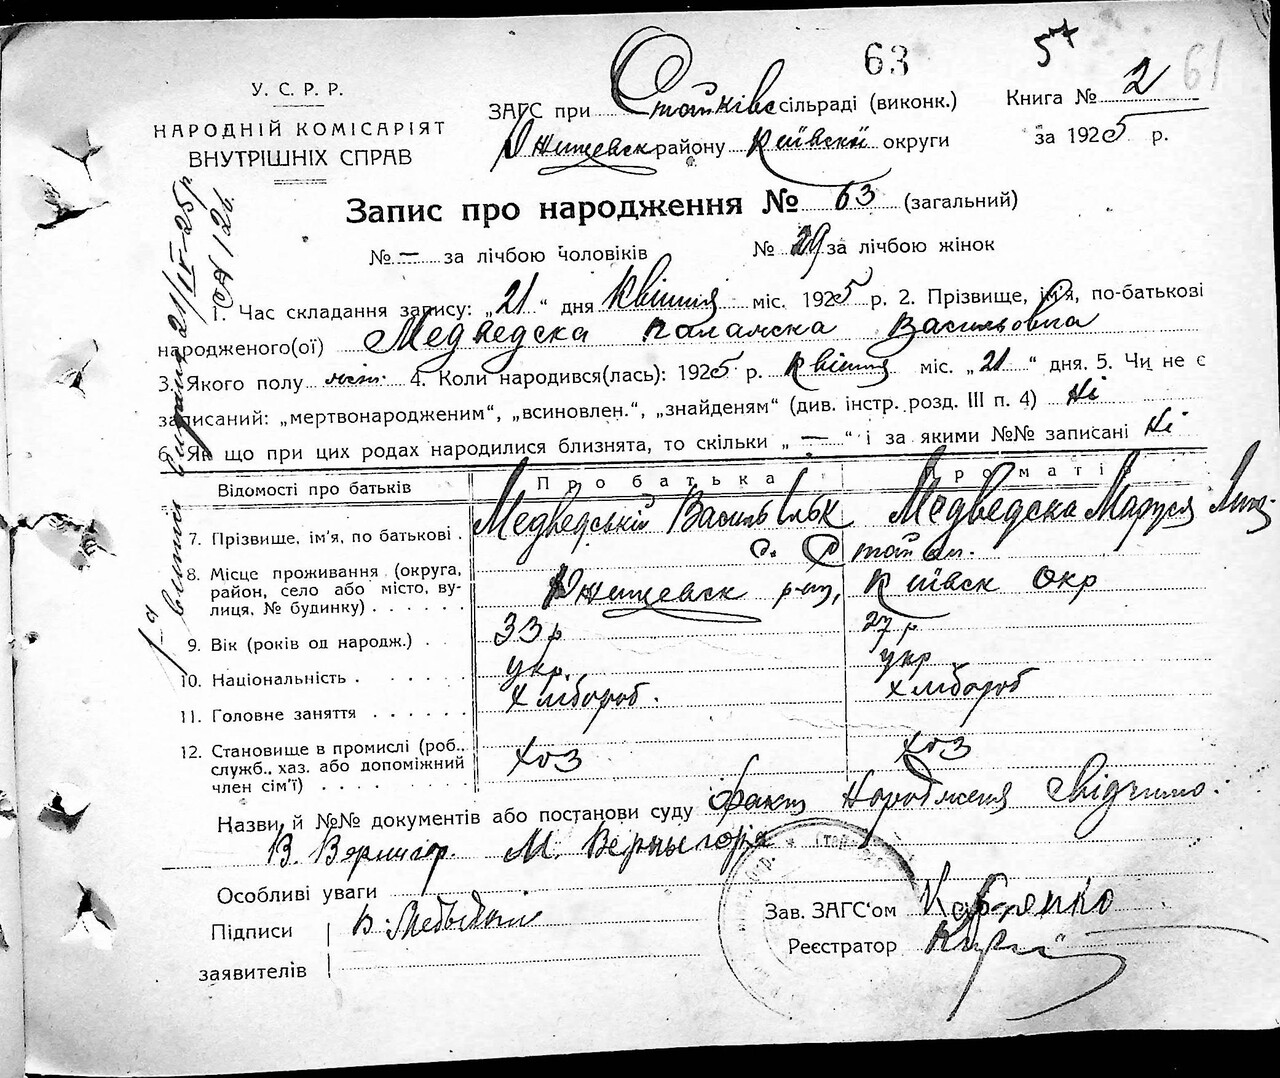 63 57 61
У. С. Р. Р.
НАРОДНІЙ КОМІСАРІЯТ
ВНУТРІШНІХ СПРАВ
ЗАГС при Стайківс сільраді (виконк.)
Ржищевск району Київскій округи
Книга № 2
за 1925 р.
Запис про народження № 63 (загальний)
№ — за лічбою чоловіків № 29 за лічбою жінок
1. Час складання запису: „21“ дня Квітня міс. 1925 р. 2. Прізвище, ім'я, по-батькові
народженого(ої) Медведска Паламска Васильовна
3. Якого полу жін. 4. Коли народився(лась): 1925 р. Квітня міс. „21“ дня. 5. Чи не є
записаний: „мертвонародженим“, „всиновлен.“, „знайденям“ (див. інстр. розд. III п. 4) Ні
6. Як що при цих родах народилися близнята, то скільки „ — “ і за якими №№ записані Ні
Відомості про батьків Про батька Про матір
7. Прізвище, ім'я, по батькові . Медведський Василь Ільк Медведска Маруся
с. Стайки.
8. Місце проживання (округа, район, село або місто, вулиця, № будинку) . . . . . . Ржищевск р-ну, Київск Окр
9. Вік (років од народж.) . 33 р 27 р
10. Національність . . . . . . укр. укр
11. Головне заняття . . . . . . хлібороб. хлібороб
12. Становище в промислі (роб., служб., хаз. або допоміжний член сім'ї) . . . . . . . . хоз хоз
Назви й №№ документів або постанови суду факт народженя свідчимо.
В. Вернигор. М. Верныгора
Особливі уваги
Підписи
заявителів
Зав. ЗАГС'ом
Реєстратор